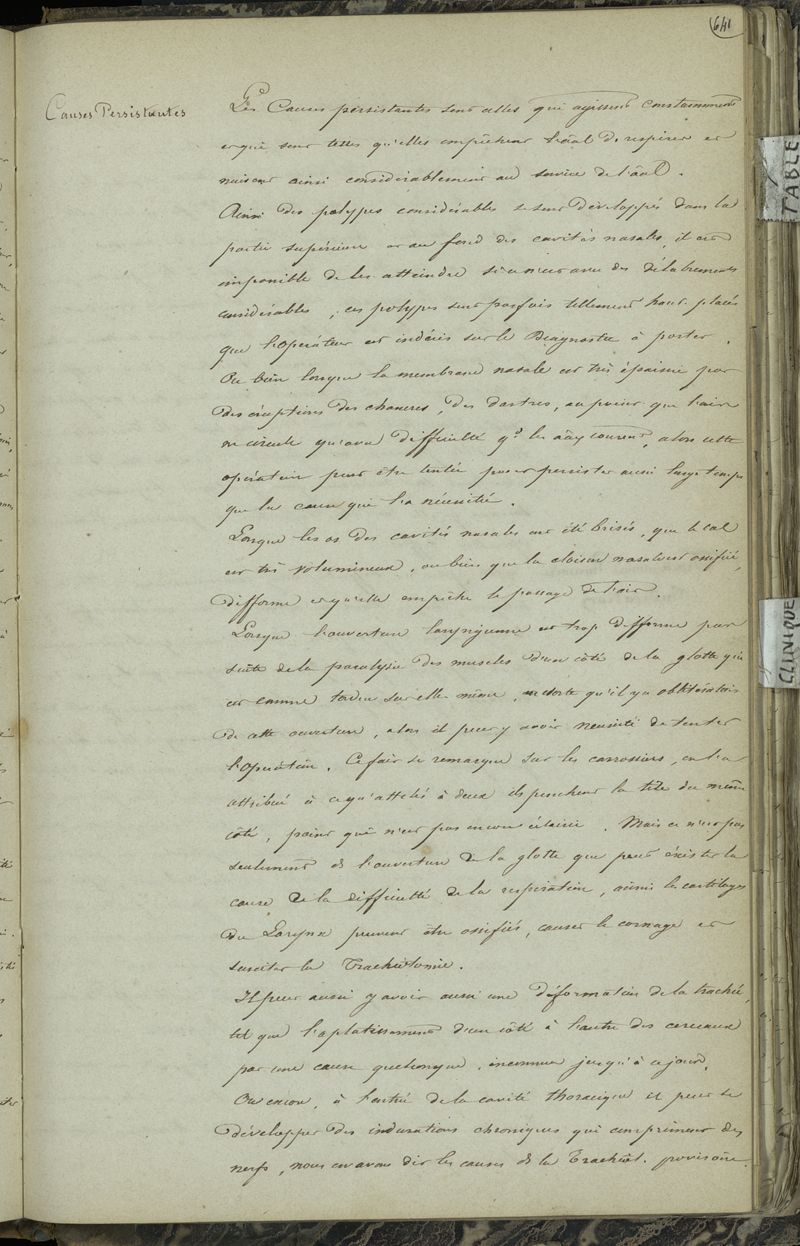 641
Causes Persistantes
Les Causes persistantes sont celles qui agissent constamment
et qui sont telles qu'elles empêchent l'âal de respirer et
nuisent ainsi considérablement au service de l'âal.
Ainsi des polypes considérables se sont développés dans la
partie supérieure et au fond des cavités nasales, il est
impossible de les atteindre si ce n'est avec des délabrements
considérables, ces polypes sont parfois tellement haut placés
que l'opérateur est indécis sur le Diagnostic à porter.
Ou bien lorsque la membrane nasale est très épaissie par
des éruptions des chancres, des dartres, au point que l'air
ne circule qu'avec difficulté qd les aax courent, alors cette
opération peut être tentée pour persister aussi longtemps
que la cause qui l'a nécessité.
Lorsque les os des cavités nasales ont été brisés, que le cal
est très volumineux, ou bien que la cloison nasale est ossifiée,
difforme et qu'elle empêche le passage de l'air.
Lorsque l'ouverture laryngienne est trop difforme par
suite de la paralysie des muscles d'un côté de la glotte qui
est comme tordue sur elle même, en sorte qu'il y a oblitération
de cette ouverture, alors il peut y avoir nécessité de tenter
l'opération. Ce fait se remarque sur les carrossiers, on l'a
attribué à ce qu'attelés à deux ils penchent la tête du même
côté, point qui n'est pas encore éclairci. Mais ce n'est pas
seulement de l'ouverture de la glotte que peut exister la
cause de la difficulté de la respiration, ainsi les cartilages
du Larynx peuvent être ossifiés, causer le cornage et
susciter la Trachéotomie.
Il peut aussi y avoir aussi une déformation de la trachée,
tel que l'aplatissement d'un côté à l'autre des cerceaux
par une cause quelconque, inconnue jusqu'à ce jour.
Ou encore, à l'entrée de la cavité thoracique il peut se
développer des indurations chroniques qui compriment des
nerfs, nous en avons dit les causes de la Trachéot. provisoire.
TABLE
CLINIQUE